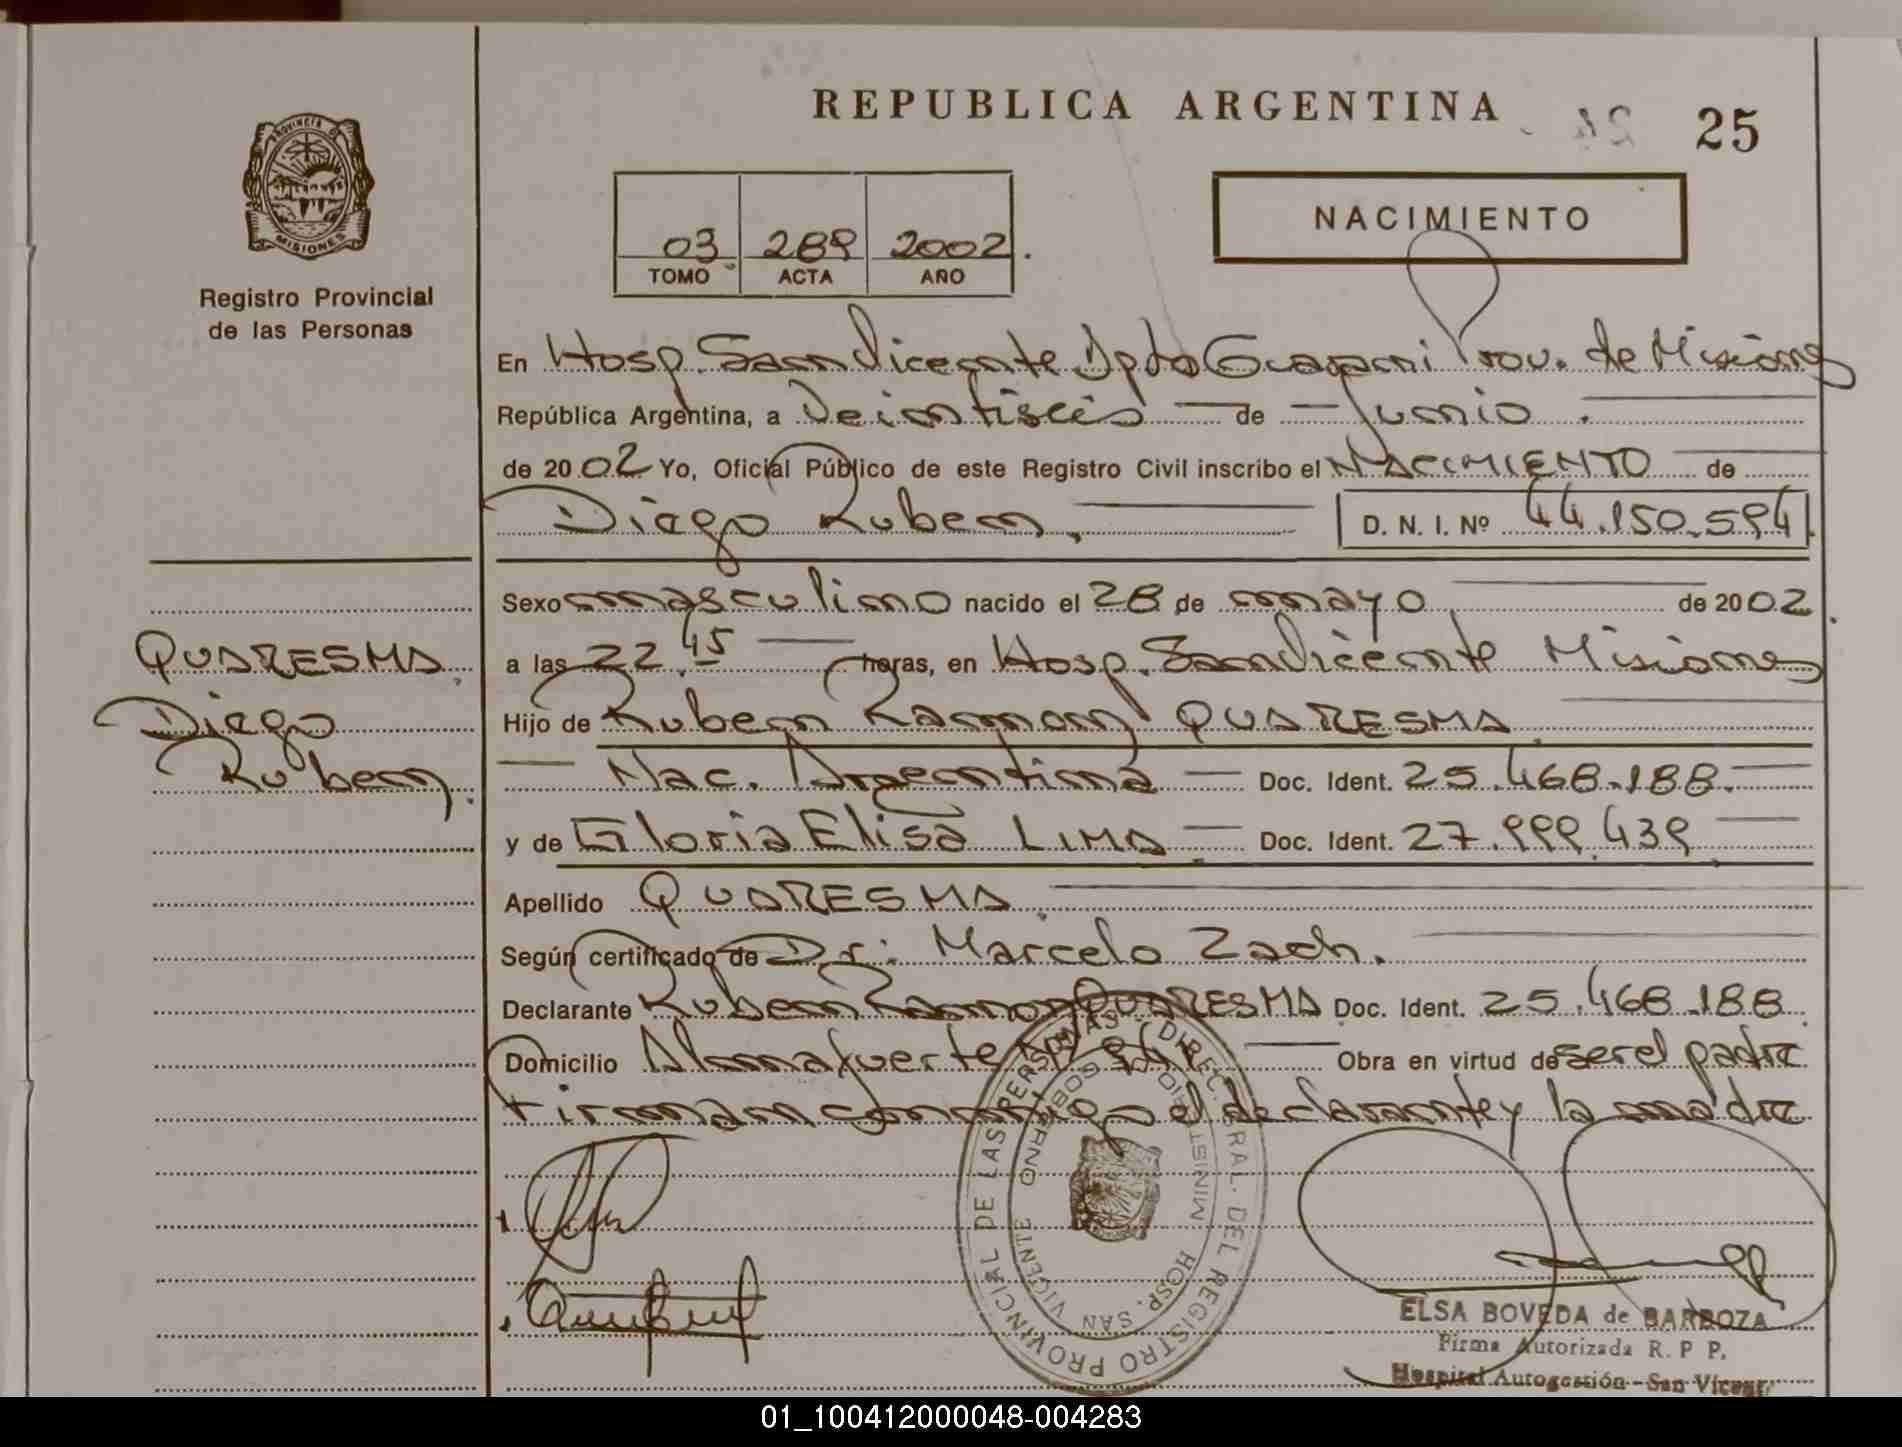 REPUBLICA ARGENTINA
25
PROVINCIA DE
MISIONES
Registro Provincial
de las Personas
NACIMIENTO
03 289 2002.
TOMO ACTA AÑO
En Hosp. San Vicente Dpto Guarani Prov. de Misiones
República Argentina, a Veintiseis de Junio.
de 2002 Yo, Oficial Público de este Registro Civil inscribo el NACIMIENTO de
Diego Ruben. D. N. I. Nº 44.150.594
Sexo masculino nacido el 28 de mayo de 2002.
a las 22.45 horas, en Hosp. San Vicente Misiones
Hijo de Ruben Ramon QUARESMA.
Nac. Argentina Doc. Ident. 25.468.188.
y de Gloria Elisa LIMA. Doc. Ident. 27.999.439.
Apellido QUARESMA.
Según certificado de Dr: Marcelo Zach.
Declarante Ruben Ramon QUARESMA Doc. Ident. 25.468.188.
Domicilio Almafuerte Obra en virtud de ser el padre
Firman conmigo el declarante y la madre
QUARESMA.
Diego
Ruben.
DIREC. GRAL. DEL REGISTRO PROVINCIAL DE LAS PERSONAS
MINISTERIO GOBIERNO
HOSP. SAN VICENTE
ELSA BOVEDA de BARBOZA
Firma Autorizada R. P P.
Hospital Autogestión - San Vicente
01_100412000048-004283